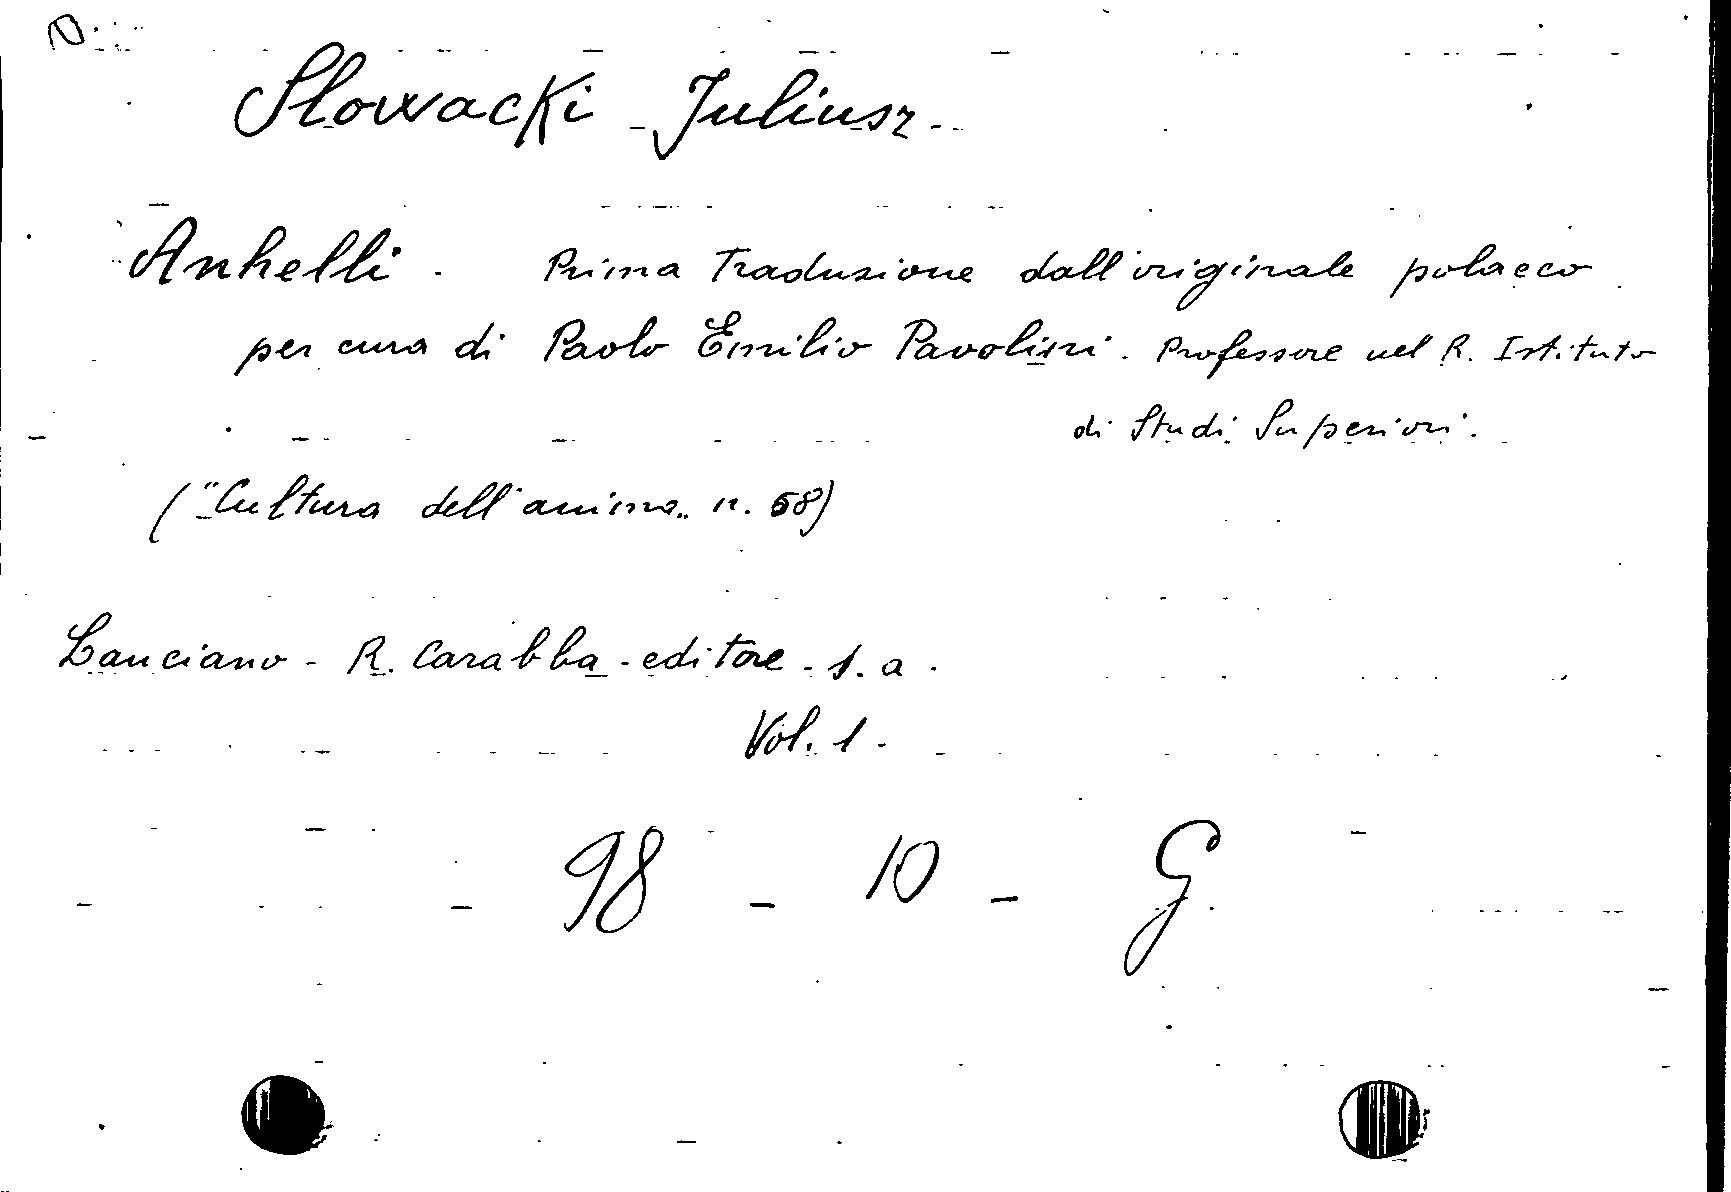 Slowacki Juliusz.
Anhelli. Prima Traduzione dall'originale polacco
per cura di Paolo Emilio Pavolini. Professore nel R. Istituto
di Studi Superiori.
("Cultura dell'anima" n. 58)
Lanciano - R. Carabba - editore - s. a.
Vol. 1.
98 - 10 - G